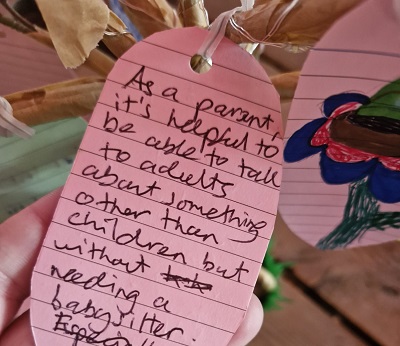 As a parent,
it's helpful to
be able to talk
to adults
about something
other than
children but
without
needing a
babysitter.